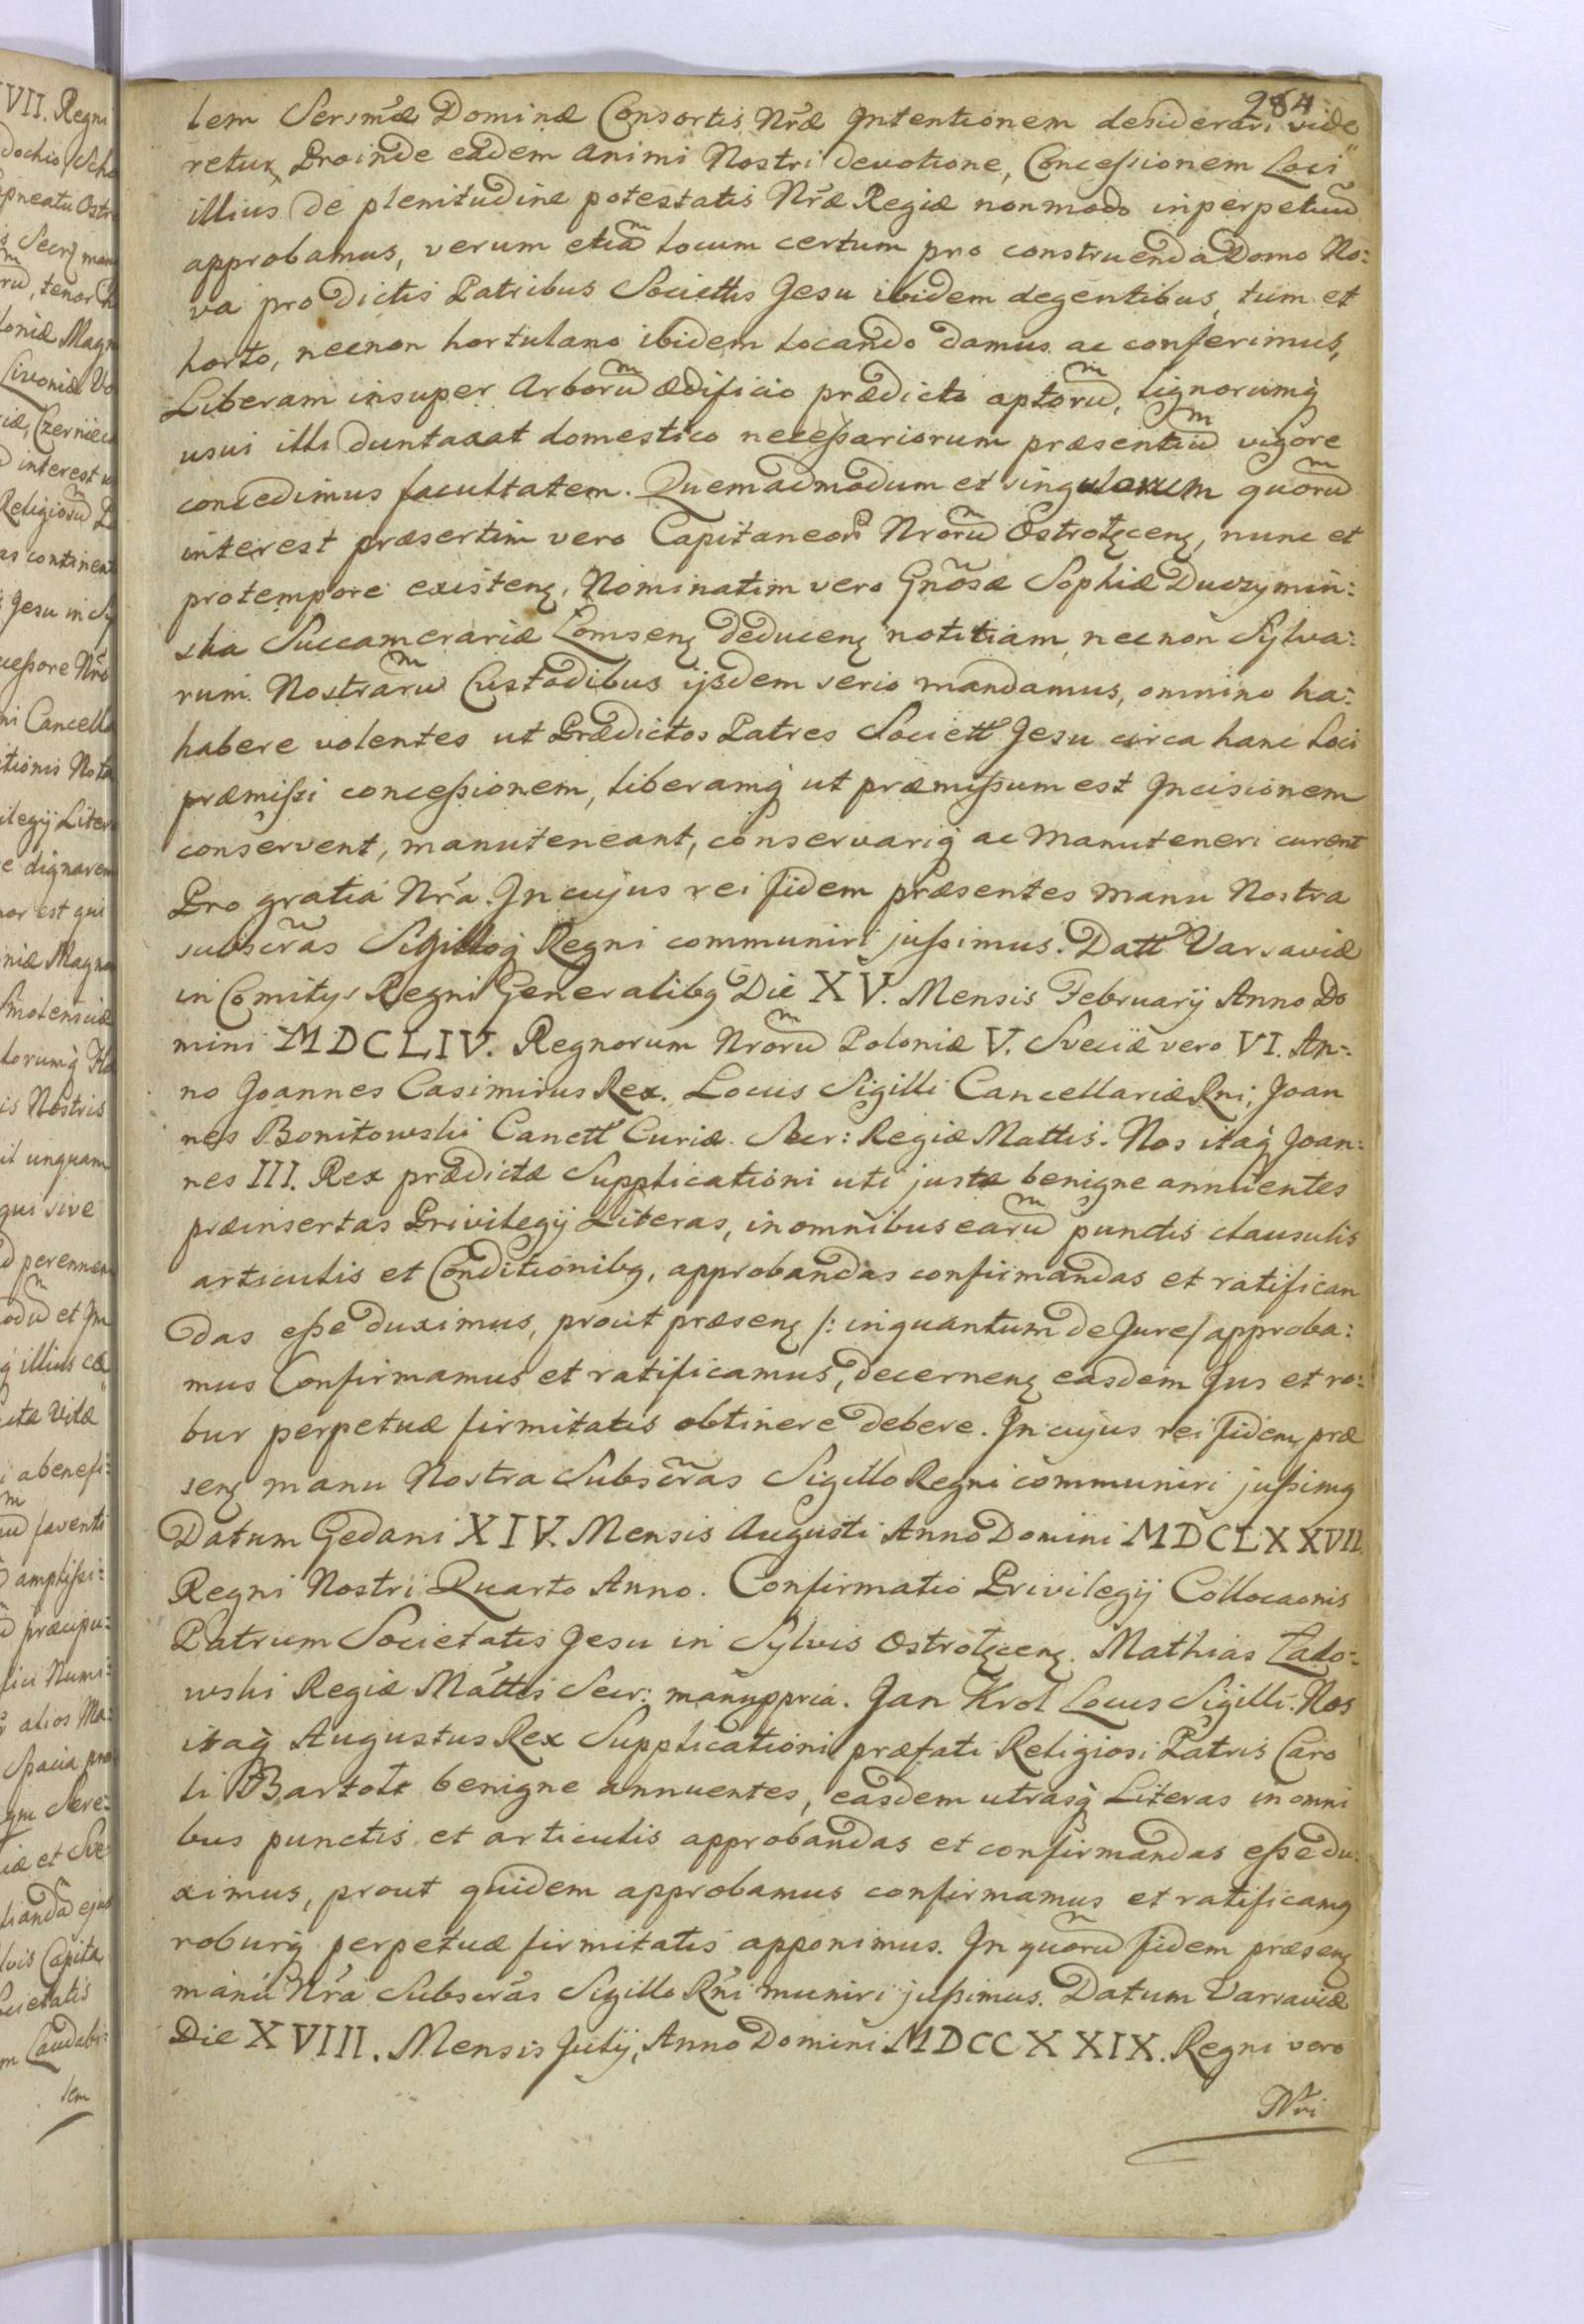 284.
lem Sersmæ Dominæ Consortis Nræ Intentionem desiderari vide
retur, Proinde eadem animi Nostri devotione, Concessionem Loci
illius de plenitudine potestatis Nræ Regiæ nonmodo inperpetuũ
approbamus, verum etiã locum certum pro construenda Domo No:
va pro Dictis Patribus Societtis Jesu ibidem degentibus, tum et
horto, necnon hortulano ibidem locando damus ac conferimus,
Liberam insuper Arborũ ædificio prædicto aptorũ, lignorumq́
usui illi duntaxat domestico necessariorum præsentiũ vigore
concedimus facultatem. Quemadmodum et singulorum quorũ
interest præsertim vero Capitaneorũ Nrorũ Ostrołęcenς, nunc et
protempore existenς, Nominatim vero Gnõsæ Sophiæ Duczymin:
ska Succamerariæ Łomsenς deducenς notitiam, necnon Sylva:
rum Nostrarũ Custodibus ijsdem serio mandamus, omnino ha:
habere volentes ut Prædictos Patres Societt Jesu circa hanc loci
præmissi concessionem, liberamq́ ut præmissum est Incisionem
conservent, manuteneant, conservariq́ ac Manuteneri curent
Pro gratia Nrá. In cujus rei fidem præsentes manu Nostra
subscr̃as Sigilloq́ Regni communiri jussimus. Datt Varsaviæ
in Comitijs Regni Generalibꝫ Die XV. Mensis February Anno Do
mini MDCLIV. Regnorum Nrorũ Poloniæ V. Sveciæ vero VI. An:
no Joannes Casimirus Rex. Locus Sigilli Cancellariæ Rni; Joan
nes Bonitowski Canctt Curiæ. Secr: Regiæ Mattis. Nos itaq́ Joan:
nes III. Rex prædictæ Supplicationi uti justæ benigne annuentes
præinsertas Privilegij Literas, in omnibus earũ punctis clausulis
articulis et Conditionibꝫ, approbandas confirmandas et ratifican
das esse duximus, prout præsenς /: inquantum de Jure/ approba:
mus Confirmamus et ratificamus, decernenς easdem Jus et ro:
bur perpetuæ firmitatis obtinere debere. In cujus rei fidem præ
senς manu Nostra Subscr̃as Sigillo Regni communiri jussimꝫ
Datum Gedani XIV. Mensis Augusti Anno Domini MDCLXXVII.
Regni Nostri Quarto Anno. Confirmatio Privilegij Collocaonis
Patrum Societatis Jesu in Sylvis Ostrołęcenς. Mathias Łado:
wski Regiæ Máttis Secr: mañuppria. Jan Krol Locus Sigilli. Nos
itaq́ Augustus Rex Supplicationi præfati Religiosi Patris Caro
li Bartolt benigne annuentes, easdem utrasq́ Literas in omni
bus punctis et articulis approbandas et confirmandas esse du:
ximus, prout quidem approbamus confirmamus et ratificamꝫ
roburq́ perpetuæ firmitatis apponimus. In quorũ fidem præsenς
manu Nrá Subscrás Sigillo Rńi muniri jussimus. Datum Varsaviæ
Die XVIII. Mensis Julij, Anno Domini MDCCXXIX. Regni vero
Nri